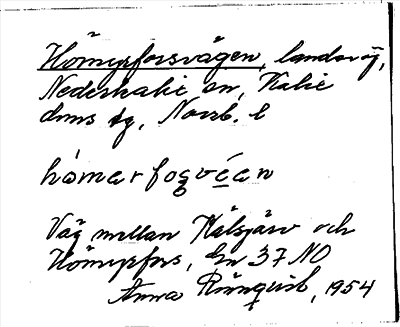 Hömyrforsvägen, landsväg,
Nederkalix sn, Kalix
dms tg, Norrb. l
hòmarfosvéan
Väg mellan Kälsjärv och
Hömyrfors, En 37 NO
Anna Rönnqvist, 1954